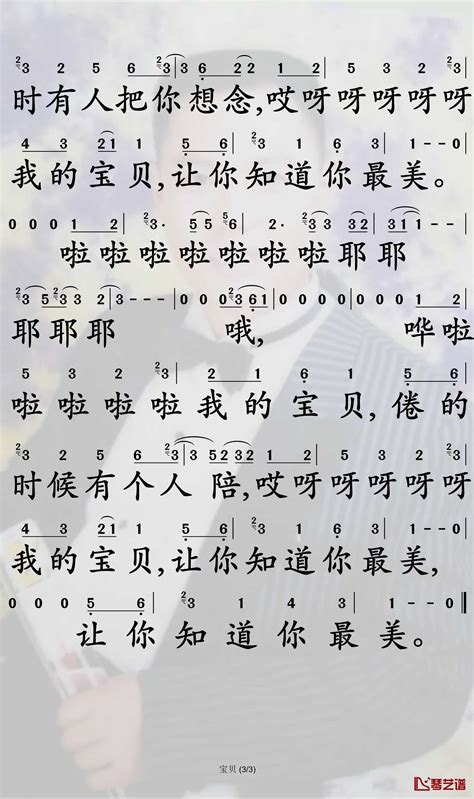 ²3 2 5 6 ²3|3 6 22 1 2|5 3 2 ²3
时有人把你想念,哎呀呀呀呀呀
4 3 21 1 5 6|²3 3 1 6 3|1--0|
我的宝贝,让你知道你最美。
0 0 0 1 2|²3· 55 ⁵6|2· ²3 32|31--|
啦啦啦啦啦啦啦耶耶
²3 5²33 2|3---|000²361|0000|0001 2|
耶耶耶 哦, 哗啦
5 3 2 ²3|1 6 1 5 6|
啦啦啦啦我的宝贝,倦的
时候有个人陪,哎呀呀呀呀呀
4 3 21 1 5 6|²3 3 1 6 3|1--0|
我的宝贝,让你知道你最美,
0 0 0 5 6|²3 3 1 4 3|1--0‖
让你知道你最美。
宝贝 (3/3)
琴艺谱